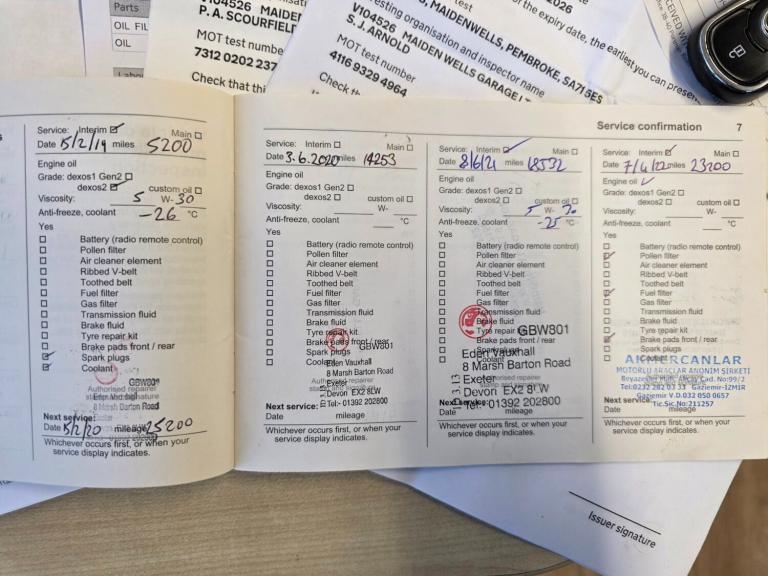 Parts
OIL FIL
OIL
V104526 MAIDEN
P. A. SCOURFIELD
MOT test numbe
7312 0202 237
Check that thi
V104526 MAIDEN WELLS GARAGE L
S. J. ARNOLD
MOT test number
4116 9329 4964
esting organisation and inspector name
S, MAIDENWELLS, PEMBROKE, SA71 5ES
2026
of the expiry date, the earliest you can presen
Service: Interim Main
Date 15/2/19 miles 5200
Engine oil
Grade: dexos1 Gen2
dexos2 custom oil
Viscosity: 5 W- 30
Anti-freeze, coolant -26 °C
Yes
Battery (radio remote control)
Pollen filter
Air cleaner element
Ribbed V-belt
Toothed belt
Fuel filter
Gas filter
Transmission fluid
Brake fluid
Tyre repair kit
Brake pads front / rear
Spark plugs
Coolant
GBW801
Authorised repairer
8 Marsh Barton Road
Next service:
Date 15/2/20 mileage 25200
Whichever occurs first, or when your
service display indicates.
Service confirmation 7
Service: Interim Main
Date 3.6.2020 miles 14253
Engine oil
Grade: dexos1 Gen2
dexos2 custom oil
Viscosity: W-
Anti-freeze, coolant °C
Yes
Battery (radio remote control)
Pollen filter
Air cleaner element
Ribbed V-belt
Toothed belt
Fuel filter
Gas filter
Transmission fluid
Brake fluid
Tyre repair kit
Brake pads front / rear
Spark plugs
Coolant
GBW801
Eden Vauxhall
8 Marsh Barton Road
Exeter
Devon EX2 8LW
Tel:- 01392 202800
Next service:
Date mileage
Whichever occurs first, or when your
service display indicates.
Service: Interim Main
Date 8/6/21 miles 18532
Engine oil
Grade: dexos1 Gen2
dexos2 custom oil
Viscosity: 5 W- 30
Anti-freeze, coolant -25 °C
Yes
Battery (radio remote control)
Pollen filter
Air cleaner element
Ribbed V-belt
Toothed belt
Fuel filter
Gas filter
Transmission fluid
Brake fluid
Tyre repair kit
Brake pads front / rear
GBW801
Eden Vauxhall
8 Marsh Barton Road
Exeter
Devon EX2 8LW
Tel: 01392 202800
Next service:
Date mileage
Whichever occurs first, or when your
service display indicates.
Service: Interim Main
Date 7/4/22 miles 23200
Engine oil
Grade: dexos1 Gen2
dexos2 custom oil
Viscosity: W-
Anti-freeze, coolant °C
Yes
Battery (radio remote control)
Pollen filter
Air cleaner element
Ribbed V-belt
Toothed belt
Fuel filter
Gas filter
Transmission fluid
Brake fluid
Tyre repair kit
Brake pads front / rear
Spark plugs
Coolant
MOTORLU ARAÇLAR ANONİM ŞİRKETİ
Cad. No:99/2
Tel:0232 282 03 33 Gaziemir-İZMİR
Gaziemir V.D.032 050 0657
Tic.Sic.No:211257
Next service:
Date mileage
Whichever occurs first, or when your
service display indicates.
Issuer signature